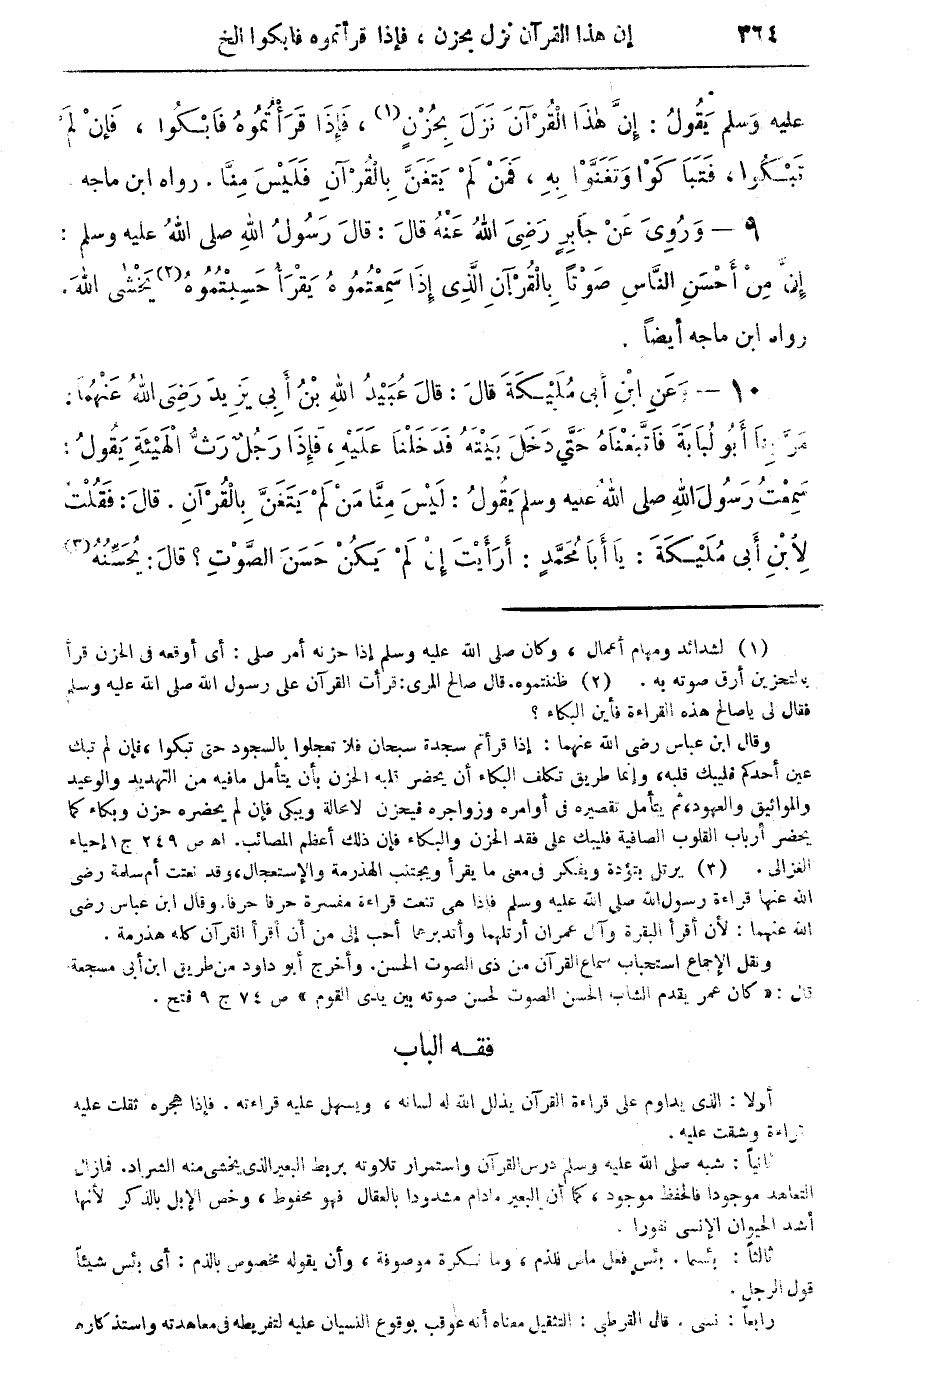 ٣٦٤ إن هذا القرآن نزل بحزن ، فإذا قرأتموه فابكوا الخ
عليه وَسلم يَقُولُ : إِنَّ هٰذَا الْقُرْآنَ نَزَلَ بِحُزْنٍ (١) ، فَإِذَا قَرَأْتُمُوهُ فَابْكُوا ، فَإِنْ لَمْ
تَبْكُوا ، فَتَبَاكَوْا وَتَغَنَّوْا بِهِ ، فَمَنْ لَمْ يَتَغَنَّ بِالْقُرْآنِ فَلَيْسَ مِنَّا . رواه ابن ماجه .
٩ — وَرُوِىَ عَنْ جَابِرٍ رَضِىَ اللهُ عَنْهُ قالَ : قالَ رَسُولُ اللهِ صلى اللهُ عليه وسلم :
إِنَّ مِنْ أَحْسَنِ النَّاسِ صَوْتاً بِالْقُرْآنِ الَّذِى إِذَا سَمِعْتُمُوهُ يَقْرَأُ حَسِبْتُمُوهُ (٢) يَخْشَى اللهَ .
رواه ابن ماجه أيضاً .
١٠ — وَعَنِ ابْنِ أَبى مُلَيْكَةَ قالَ : قالَ عُبَيْدُ اللهِ بْنُ أَبِي يَزِيدَ رَضِىَ اللهُ عَنْهُمَا :
مَرَّ بِنَا أَبُو لُبَابَةَ فَاتَّبَعْنَاهُ حَتَّى دَخَلَ بَيْتَهُ فَدَخَلْنَا عَلَيْهِ ، فَإِذَا رَجُلٌ رَثُّ الْهَيْئَةِ يَقُولُ :
سَمِعْتُ رَسُولَ اللهِ صلى اللهُ عليه وسلم يَقُولُ : لَيْسَ مِنَّا مَنْ لَمْ يَتَغَنَّ بِالْقُرْآنِ . قالَ : فَقُلْتُ
لِأَبْنِ أَبى مُلَيْكَةَ : يَا أَبَا مُحَمَّدٍ : أَرَأَيْتَ إِنْ لَمْ يَكُنْ حَسَنَ الصَّوْتِ ؟ قالَ : يُحَسِّنُهُ (٣)
(١) لشدائد ومهام أعمال ، وكان صلى الله عليه وسلم إذا حزنه أمر صلى : أى أوقعه فى الحزن قرأ
بالتحزين أرق صوته به . (٢) ظننتموه . قال صالح المرى : قرأت القرآن على رسول الله صلى الله عليه وسلم
فقال لى ياصالح هذه القراءة فأين البكاء ؟
وقال ابن عباس رضى الله عنهما : إذا قرأتم سجدة سبحان فلا تعجلوا بالسجود حتى تبكوا ، فإن لم تبك
عين أحدكم فليبك قلبه ، وإنما طريق تكلف البكاء أن يحضر قلبه الحزن بأن يتأمل مافيه من التهديد والوعيد
والمواثيق والعهود ، ثم يتأمل تقصيره فى أوامره وزواجره فيحزن لامحالة ويبكى فإن لم يحضره حزن وبكاء كما
يحضر أرباب القلوب الصافية فليبك على فقد الحزن والبكاء فإن ذلك أعظم المصائب . اهـ ص ٢٤٩ ج ١ إحياء
الغزالى . (٣) يرتل بتؤدة ويفكر فى معنى ما يقرأ ويجتنب الهذرمة والإستعجال ، وقد نعتت أم سلمة رضى
الله عنها قراءة رسول الله صلى الله عليه وسلم فإذا هى تنعت قراءة مفسرة حرفا حرفا . وقال ابن عباس رضى
الله عنهما : لأن أقرأ البقرة وآل عمران أرتلهما وأتدبرهما أحب إلى من أن أقرأ القرآن كله هذرمة .
ونقل الإجماع استحباب سماع القرآن من ذى الصوت الحسن . وأخرج أبو داود من طريق ابن أبى مسجعة
قال : « كان عمر يقدم الشاب الحسن الصوت لحسن صوته بين يدى القوم » ص ٧٤ ج ٩ فتح .
فقه الباب
أولا : الذى يداوم على قراءة القرآن يذلل الله له لسانه ، ويسهل عليه قراءته . فإذا هجره ثقلت عليه
قراءة وشقت عليه .
ثانياً : شبه صلى الله عليه وسلم درس القرآن واستمرار تلاوته بربط البعير الذى يخشى منه الشراد . فمازال
التعاهد موجودا فالحفظ موجود ، كما أن البعير مادام مشدودا بالعقال فهو محفوظ ، وخص الإبل بالذكر لأنها
أشد الحيوان الإنسى نفورا .
ثالثاً : بئسما . بئس فعل ماض للذم ، وما نكرة موصوفة ، وأن يقوله مخصوص بالذم : أى بئس شيئاً
قول الرجل .
رابعاً : نسى . قال القرطبى : التثقيل معناه أنه عوقب بوقوع النسيان عليه لتفريطه فى معاهدته واستذكاره